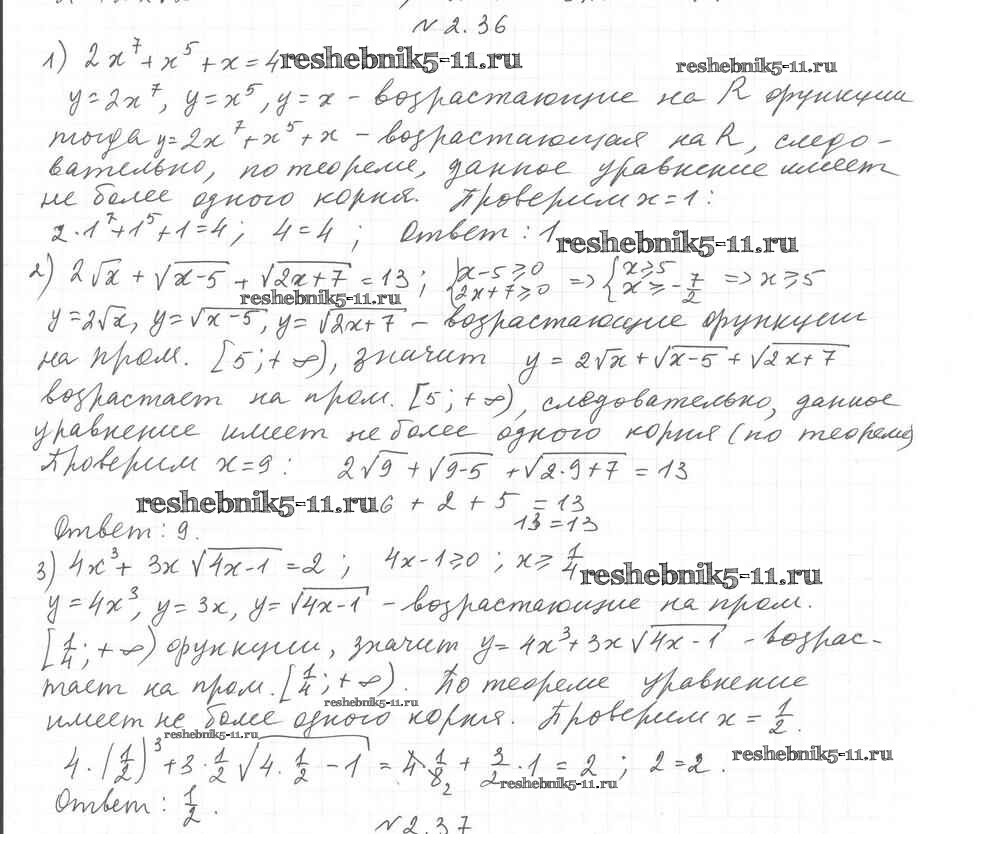 № 2.36
1) 2x⁷ + x⁵ + x = 4 reshebnik5-11.ru reshebnik5-11.ru
y = 2x⁷, y = x⁵, y = x – возрастающие на R функции
тогда y = 2x⁷ + x⁵ + x – возрастающая на R, следо-
вательно, по теореме, данное уравнение имеет
не более одного корня. Проверим x = 1:
2·1⁷ + 1⁵ + 1 = 4; 4 = 4; Ответ: 1 reshebnik5-11.ru
2) 2√x + √(x-5) + √(2x+7) = 13; {x-5 ≥ 0, 2x+7 ≥ 0 => {x ≥ 5, x ≥ -7/2 => x ≥ 5
reshebnik5-11.ru
y = 2√x, y = √(x-5), y = √(2x+7) – возрастающие функции
на пром. [5; +∞), значит y = 2√x + √(x-5) + √(2x+7)
возрастает на пром. [5; +∞), следовательно, данное
уравнение имеет не более одного корня (по теореме)
Проверим x = 9: 2√9 + √(9-5) + √(2·9+7) = 13
reshebnik5-11.ru 6 + 2 + 5 = 13
13 = 13
Ответ: 9.
3) 4x³ + 3x√(4x-1) = 2; 4x-1 ≥ 0; x ≥ 1/4 reshebnik5-11.ru
y = 4x³, y = 3x, y = √(4x-1) – возрастающие на пром.
[1/4; +∞) функции, значит y = 4x³ + 3x√(4x-1) – возрас-
тает на пром. [1/4; +∞). По теореме уравнение
reshebnik5-11.ru
имеет не более одного корня. Проверим x = 1/2.
reshebnik5-11.ru
4·(1/2)³ + 3·1/2√(4·1/2 - 1) = 4·1/8₂ + 3/2·1 = 2; 2 = 2. reshebnik5-11.ru
reshebnik5-11.ru
Ответ: 1/2.
№ 2.37